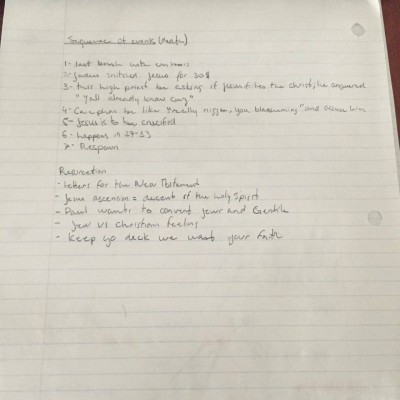 Sequence of events (Death)
1- last brush with
2- Judas snitched Jesus for 30$
3- this high priest be asking if Jesus is the christ, he answered
"Yall already know cuz"
4- Caiaphas be like "really nigga, you blaspheming" and accuse him
5- Jesus is to be crucified
6- happens in 27-33
7- Respawn
Resurrection
- letters for the New Testament
- Jesus ascension = descent of the Holy Spirit
- Paul wants to convert Jews and Gentile
- Jew vs Christian feeling
- Keep yo deck we want your faith